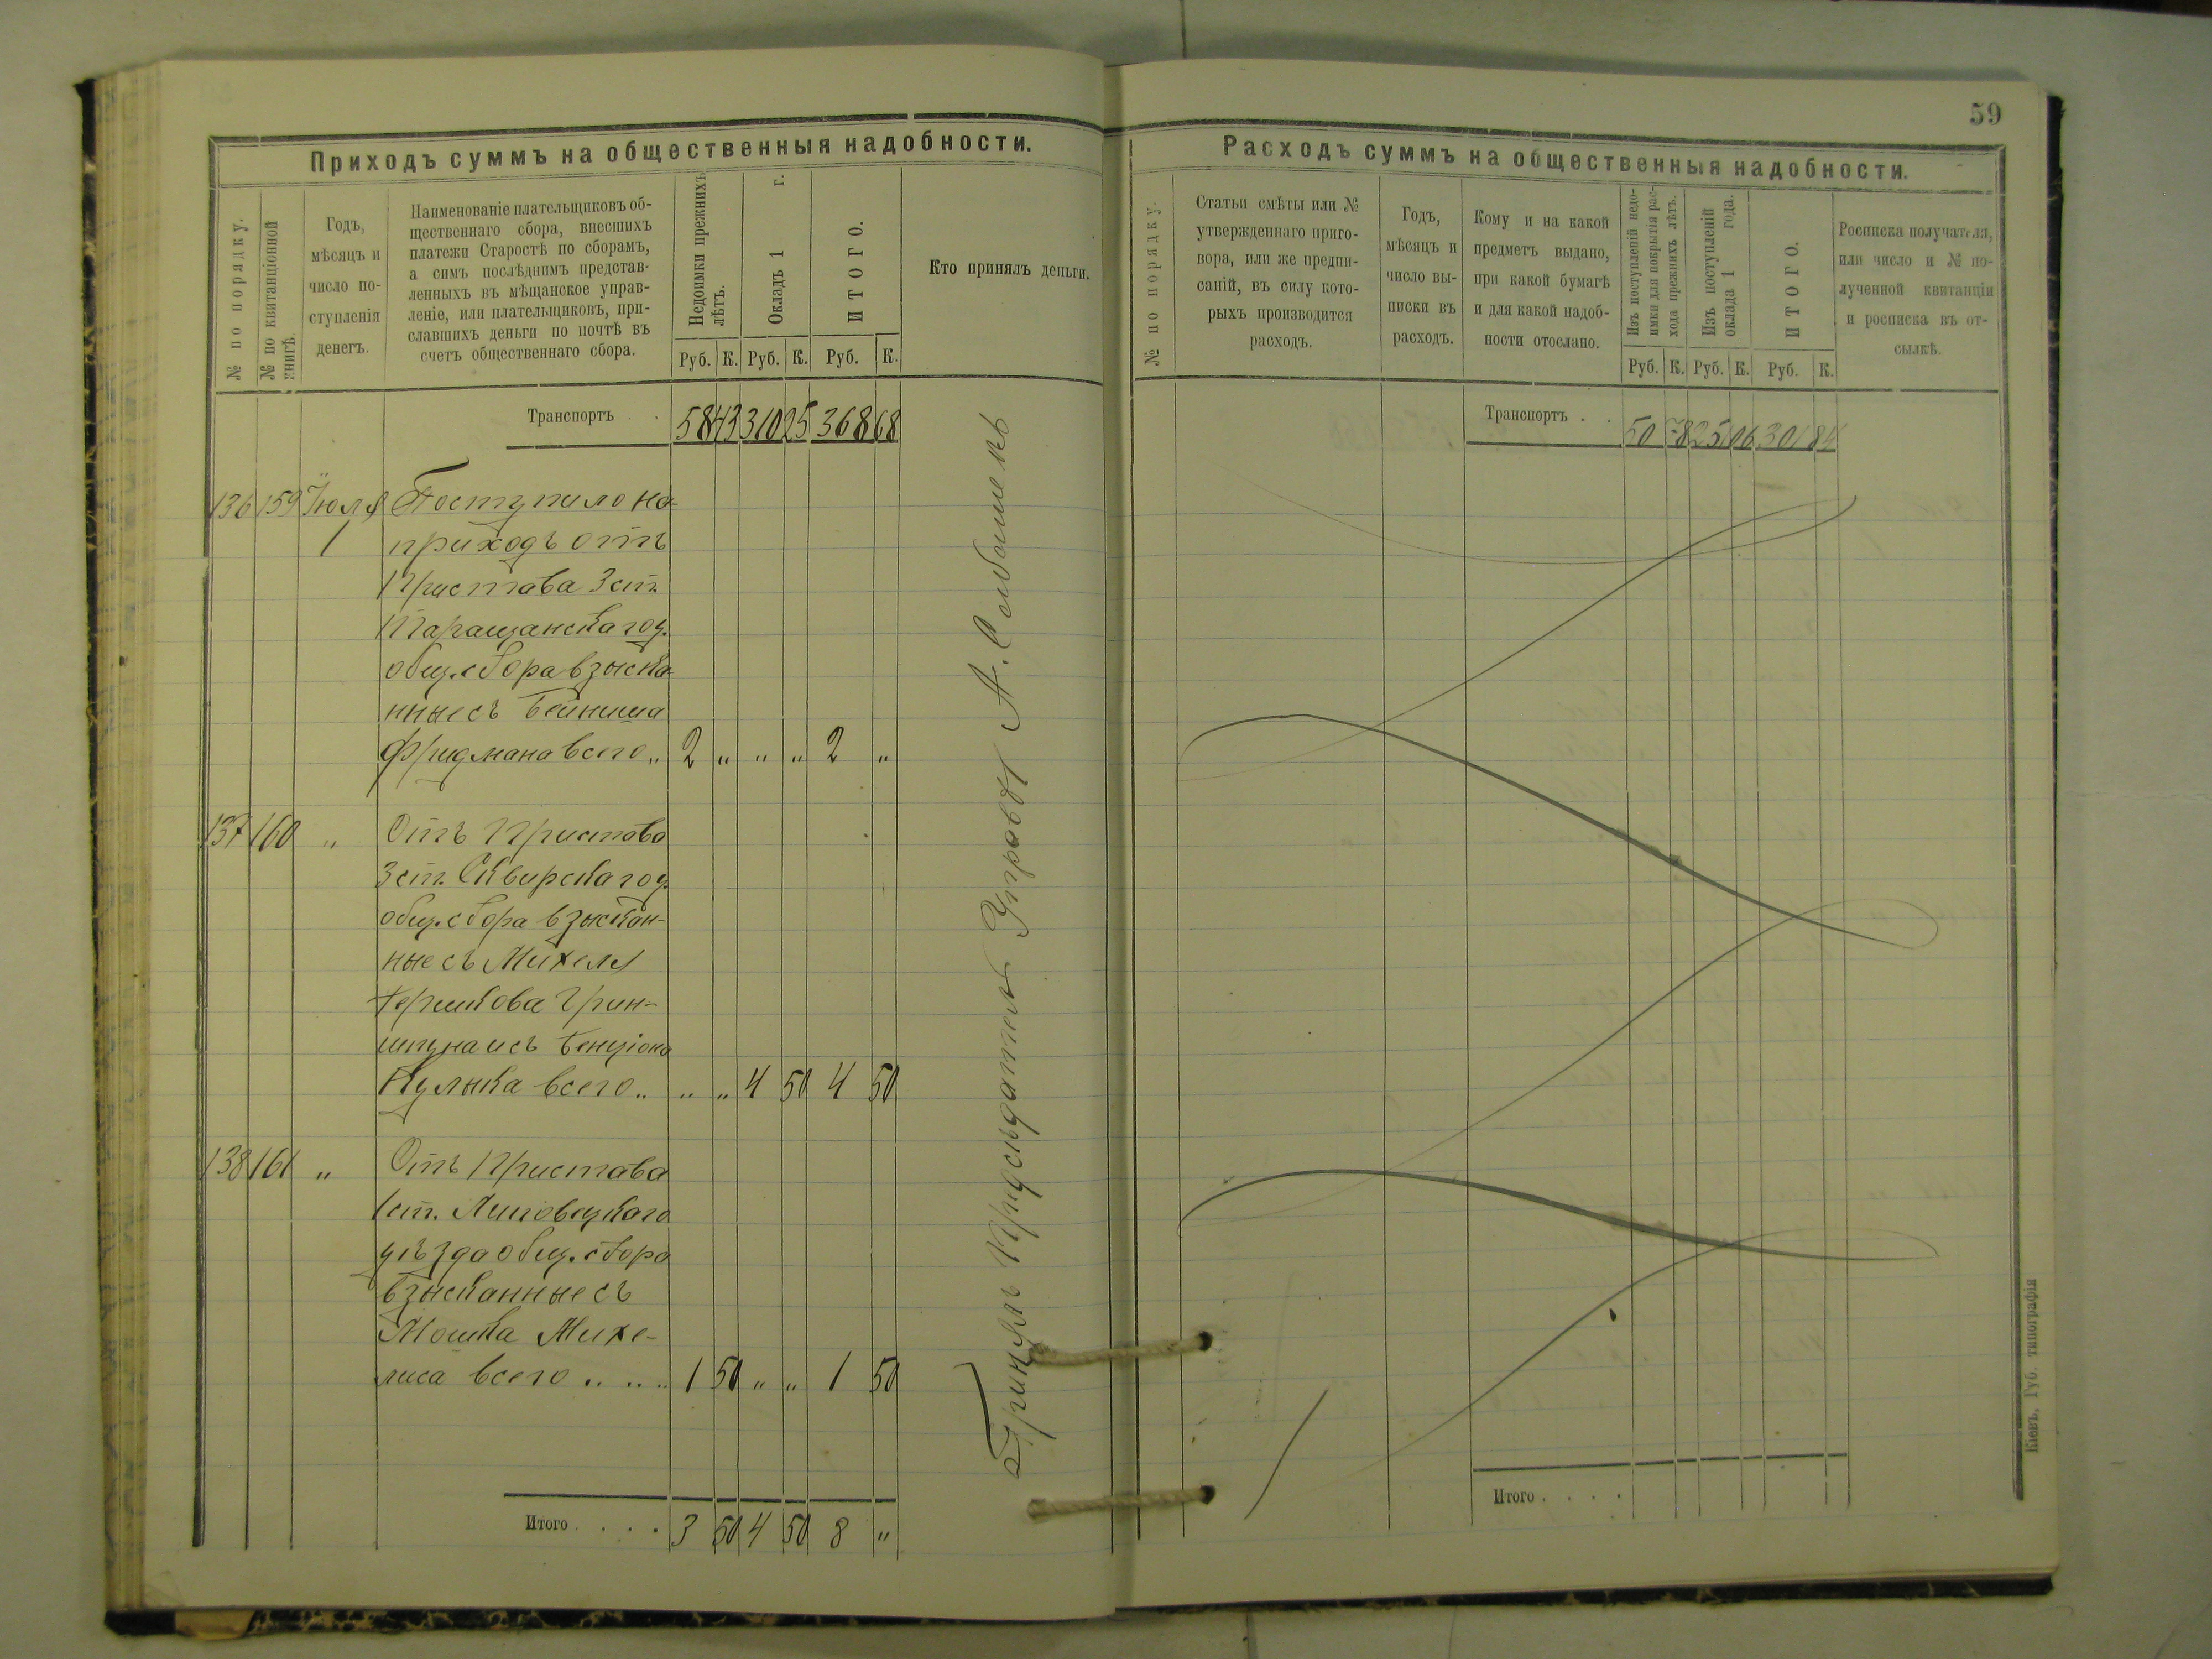 Приходъ суммъ на общественныя надобности.
№ по порядку.
№ по квитанціонной
книгѣ.
Годъ,
мѣсяцъ и
число по-
ступленія
денегъ.
Наименованіе плательщиковъ об-
щественнаго сбора, внесшихъ
платежи Старостѣ по сборамъ,
а симъ послѣднимъ представ-
ленныхъ въ мѣщанское управ-
леніе, или плательщиковъ, при-
славшихъ деньги по почтѣ въ
счетъ общественнаго сбора.
Недоимки прежнихъ
лѣтъ.
Окладъ 1 г.
ИТОГО.
Руб. К. Руб. К. Руб. К.
Кто принялъ деньги.
Транспортъ . . 58 43 310 25 368 68
136 159 Іюля Поступило на
1 приходъ отъ
Пристава 3 ст.
Таращанскаго у.
общ. сбора взыска-
нные съ Бейниша
Фридмана всего „ 2 „ „ „ 2 „
137 160 „ Отъ Пристава
3 ст. Сквирскаго у.
общ. сбора взыскан-
ные съ Михеля
Гершкова Грин-
шпуна и съ Бенціона
Кулыка всего „ „ „ 4 50 4 50
138 161 „ Отъ Пристава
1 ст. Липовецкаго
уѣзда общ. сбора
взысканные съ
Мошка Михе-
лиса всего „ „ „ 1 50 „ „ 1 50
Итого . . . . 3 50 4 50 8 „
Принялъ Предсѣдатель Управы А.
59
Расходъ суммъ на общественныя надобности.
№ по порядку.
Статьи смѣты или №
утвержденнаго приго-
вора, или же предпи-
саній, въ силу кото-
рыхъ производится
расходъ.
Годъ,
мѣсяцъ и
число вы-
писки въ
расходъ.
Кому и на какой
предметъ выдано,
при какой бумагѣ
и для какой надоб-
ности отослано.
Изъ поступленій недо-
имки для покрытія рас-
хода прежнихъ лѣтъ.
Изъ поступленій
оклада 1 года.
ИТОГО.
Руб. К. Руб. К. Руб. К.
Росписка получателя,
или число и № по-
лученной квитанціи
и росписка въ от-
сылкѣ.
Транспортъ . . 50 78 251 06 301 84
Итого . . . .
Кіевъ, Губ. типографія